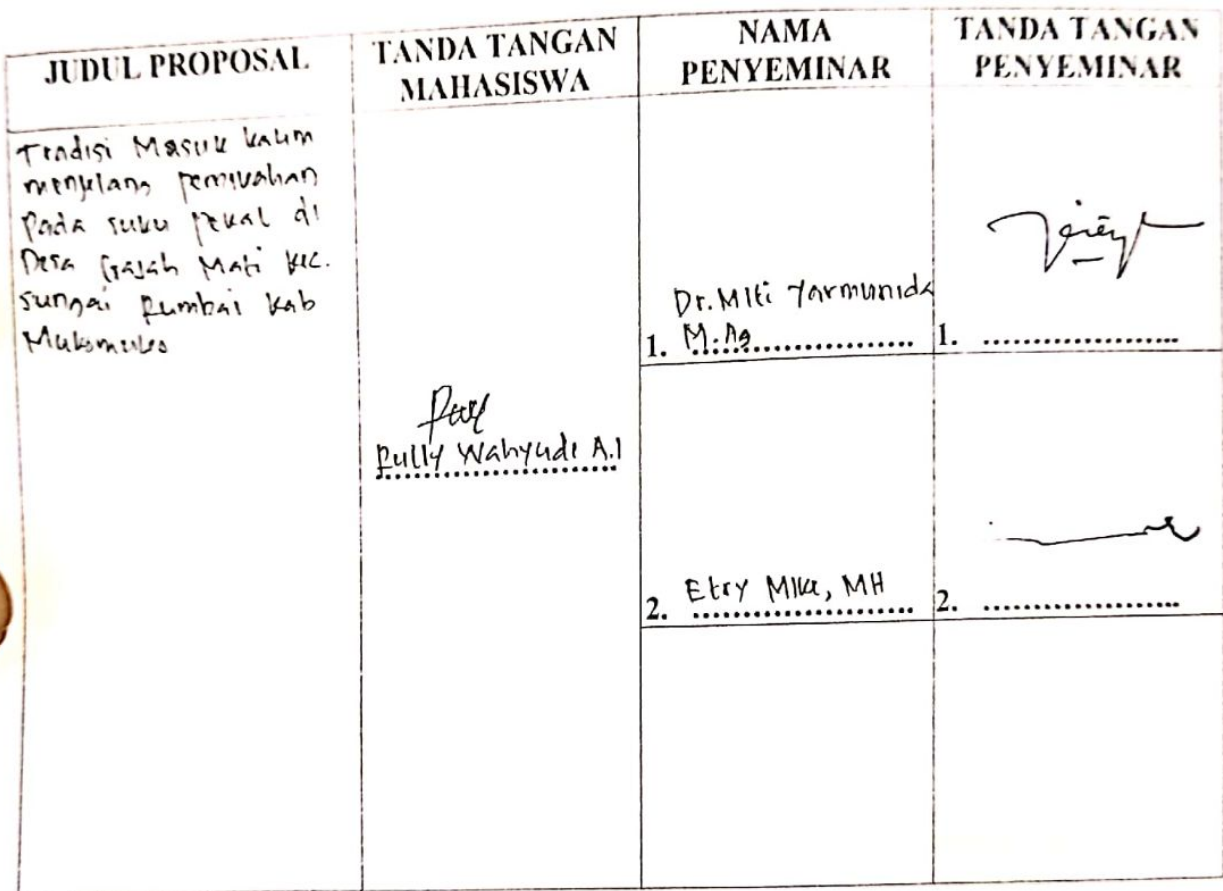 JUDUL PROPOSAL
TANDA TANGAN
MAHASISWA
NAMA
PENYEMINAR
TANDA TANGAN
PENYEMINAR
Tradisi Masuk kaum
menjelang pernikahan
Pada suku pekal di
Desa Gajah Mati kec.
sungai Rumbai kab
Mukomuko
Rully Wahyudi A.I
Dr. Miti Yarmunida
1. M.Ag..................
1. ....................
2. Etry Mike, MH
2. ....................